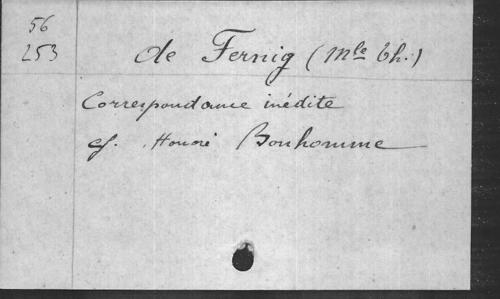 56
253
de Fernig (Mle Th.)
Correspondance inédite
cf. Honoré Bonhomme